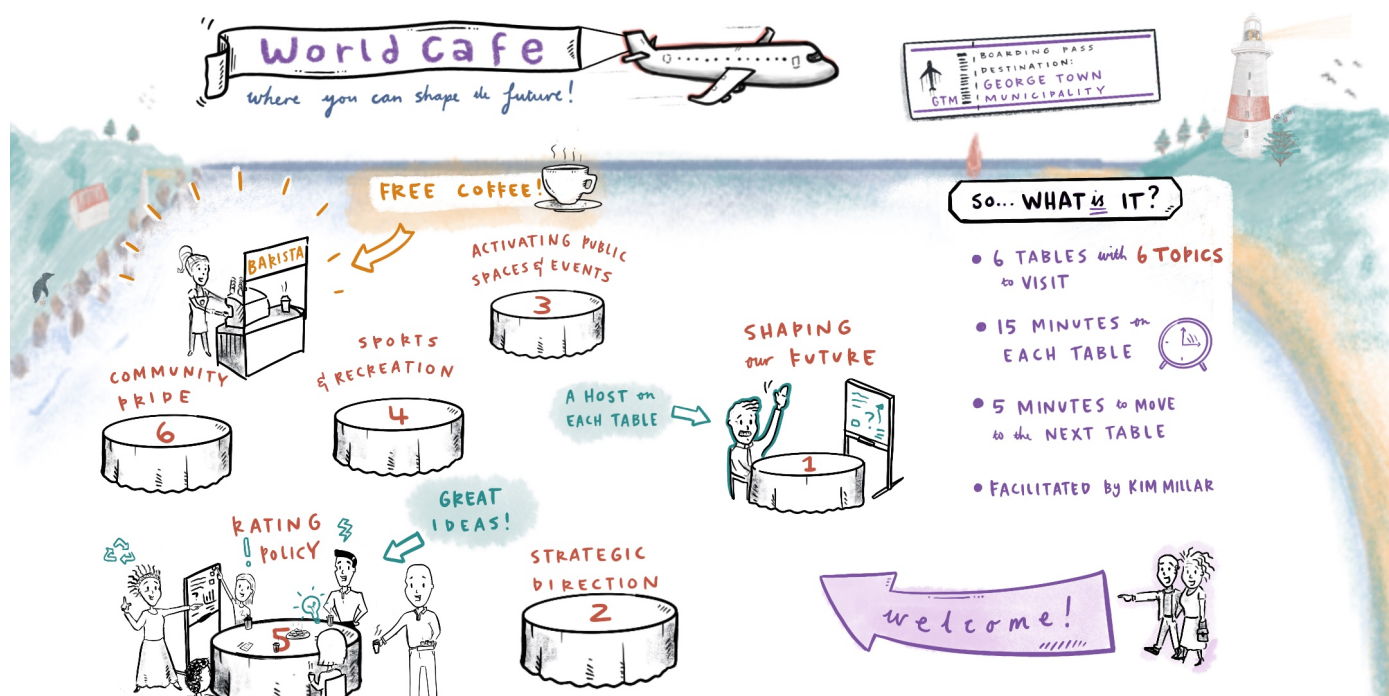 World Cafe
where you can shape the future!
BOARDING PASS
DESTINATION:
GEORGE TOWN
MUNICIPALITY
GTM
FREE COFFEE!
BARISTA
ACTIVATING PUBLIC
SPACES & EVENTS
3
SPORTS
& RECREATION
4
COMMUNITY
PRIDE
6
A HOST on
EACH TABLE
SHAPING
our FUTURE
?
1
GREAT
IDEAS!
RATING
POLICY
!
5
STRATEGIC
DIRECTION
2
SO... WHAT is IT?
• 6 TABLES with 6 TOPICS
to VISIT
• 15 MINUTES on
EACH TABLE
• 5 MINUTES to MOVE
to the NEXT TABLE
• FACILITATED By KIM MILLAR
welcome!